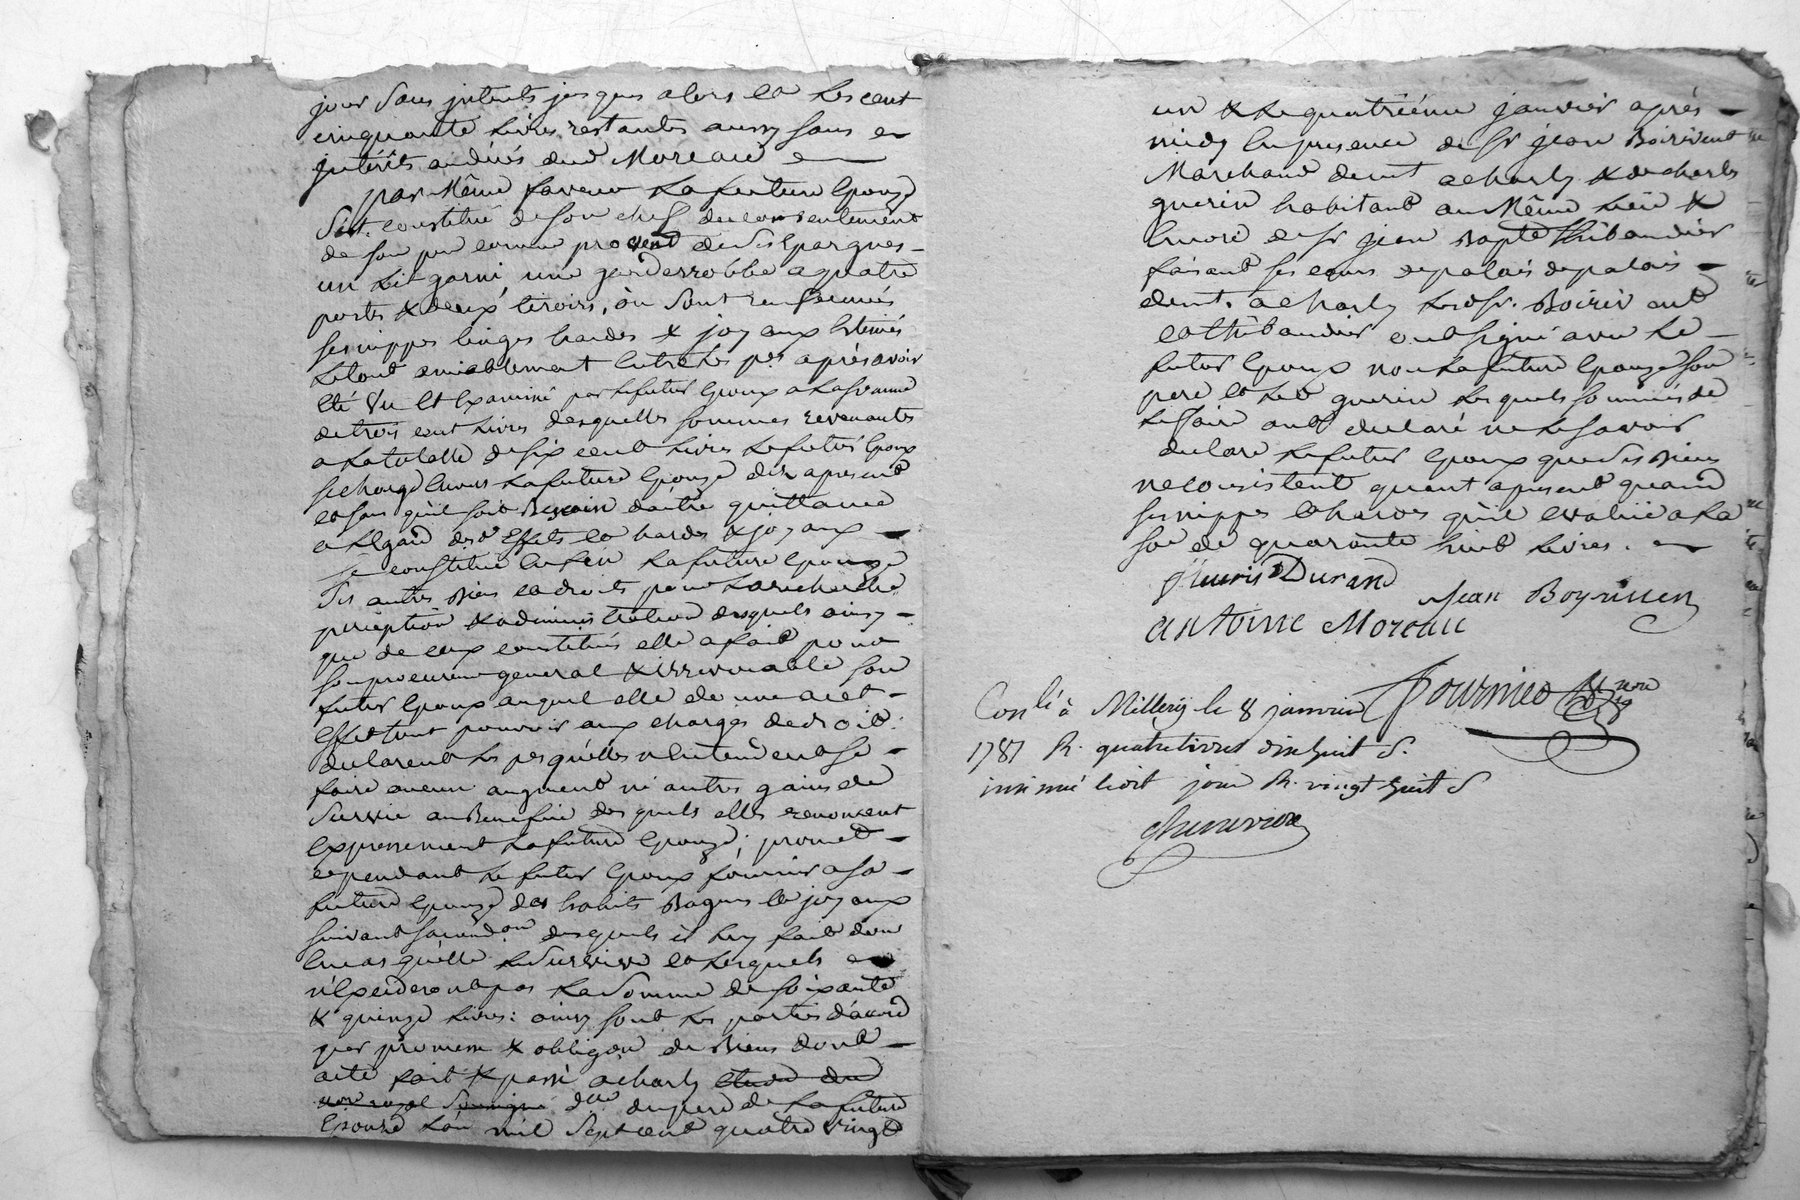 jour sans jnterets jusques alors et les cent
cinquante livres restantes aussy sans
jnterêts audit Moreau
par Même faveur la future Epouze
Sest constitué de son chef du consentement
de son pere comme provent de ses Epargnes
un Lit garni, une garderrobbe a quatre
portes & deux tiroirs, ôu sont renfermés
ses nippes linges hardes & joyaux Estimés
Le tout amiablement Entre les pes après avoir
Eté Vu Et Examiné par le futur Epoux a la somme
de trois cent Livres desquelles sommes revenantes
a la totalle de six cent Livres Le futur Epoux
se charge Envers La future Epouze des apresent
et sans qu'il soit Besoin d'autre quittance
a l'Egard des d. Effets et hardes & joyaux
se constitue Enfin La future Epouze
Ses autres Biens et droits pour La recherche
perception & administration desquels ainsy
que de ceux constitués elle a fait pour
son procureur general & irrevocable son
futur Epoux auquel elle
Effet tant pourvoir aux charges de droit.
declarent les pes qu'elles n'Entendent se
faire aucun augment ni autres gains de
Survie au Benefice desquels elles renoncent
Expressement La future Epouze; promet
cependant Le futur Epoux fournir a sa
future Epouze des habits Bagues et joyaux
suivant sa condon desquels il luy fait don
En cas qu'elle Le Survive et Lesquels
n'Excederont pas La Somme de soixante
& quinze Livres: ainsy sont Les parties d'acord
par promesse & obligaon de Biens dont
acte fait & passé a charly etude du
nore royal Soussigné dlle du pere de La future
Epouze L'an mil Sept cent quatre vingt
un & le quatriéme janvier aprés
midy En presence de Sr jean Boirivent
Marchand demt a charly & de charles
guerin habitant au Même Lieu &
Encore de Sr jean Bapte thibaudier
faisant ses cours de palais de palais
demt. a charly Lesd. Sr. Boirivent
et thibaudier ont signé avec Le
futur Epoux non La future Epouze son
pere et Led guerin Lesquels sommés de
Le faire ont declaré ne le savoir
declare Le futur Epoux que ses Biens
ne consistent quant apresent quand
ses nippes et hardes qu'il evalüe a La
Se de quarante huit Livres.
Durand
Jean Boyriven
antoine Moreau
Fournier
Conlé à Millery le 8 janvier
1781 R. quatre livres dix huit S.
insinué ledit jour R. vingt huit S
chenevière